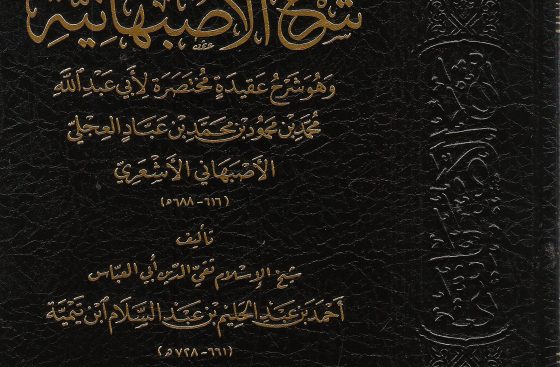 شرح الأصبهانية
وَهُوَ شَرْحُ عَقِيدَةٍ مُخْتَصَرَةٍ لِأَبِي عَبْدِ اللَّهِ
مُحَمَّدِ بْنِ مَحْمُودِ بْنِ مُحَمَّدِ بْنِ عَبَّادٍ العِجْلِيِّ
الأَصْبَهَانِي الأَشْعَرِيِّ
(٦١٦ - ٦٨٨هـ)
تأليف
شيخ الإسلام تقي الدين أبي العباس
أحمد بن عبد الحليم بن عبد السلام ابن تيمية
(٦٦١ - ٧٢٨هـ)